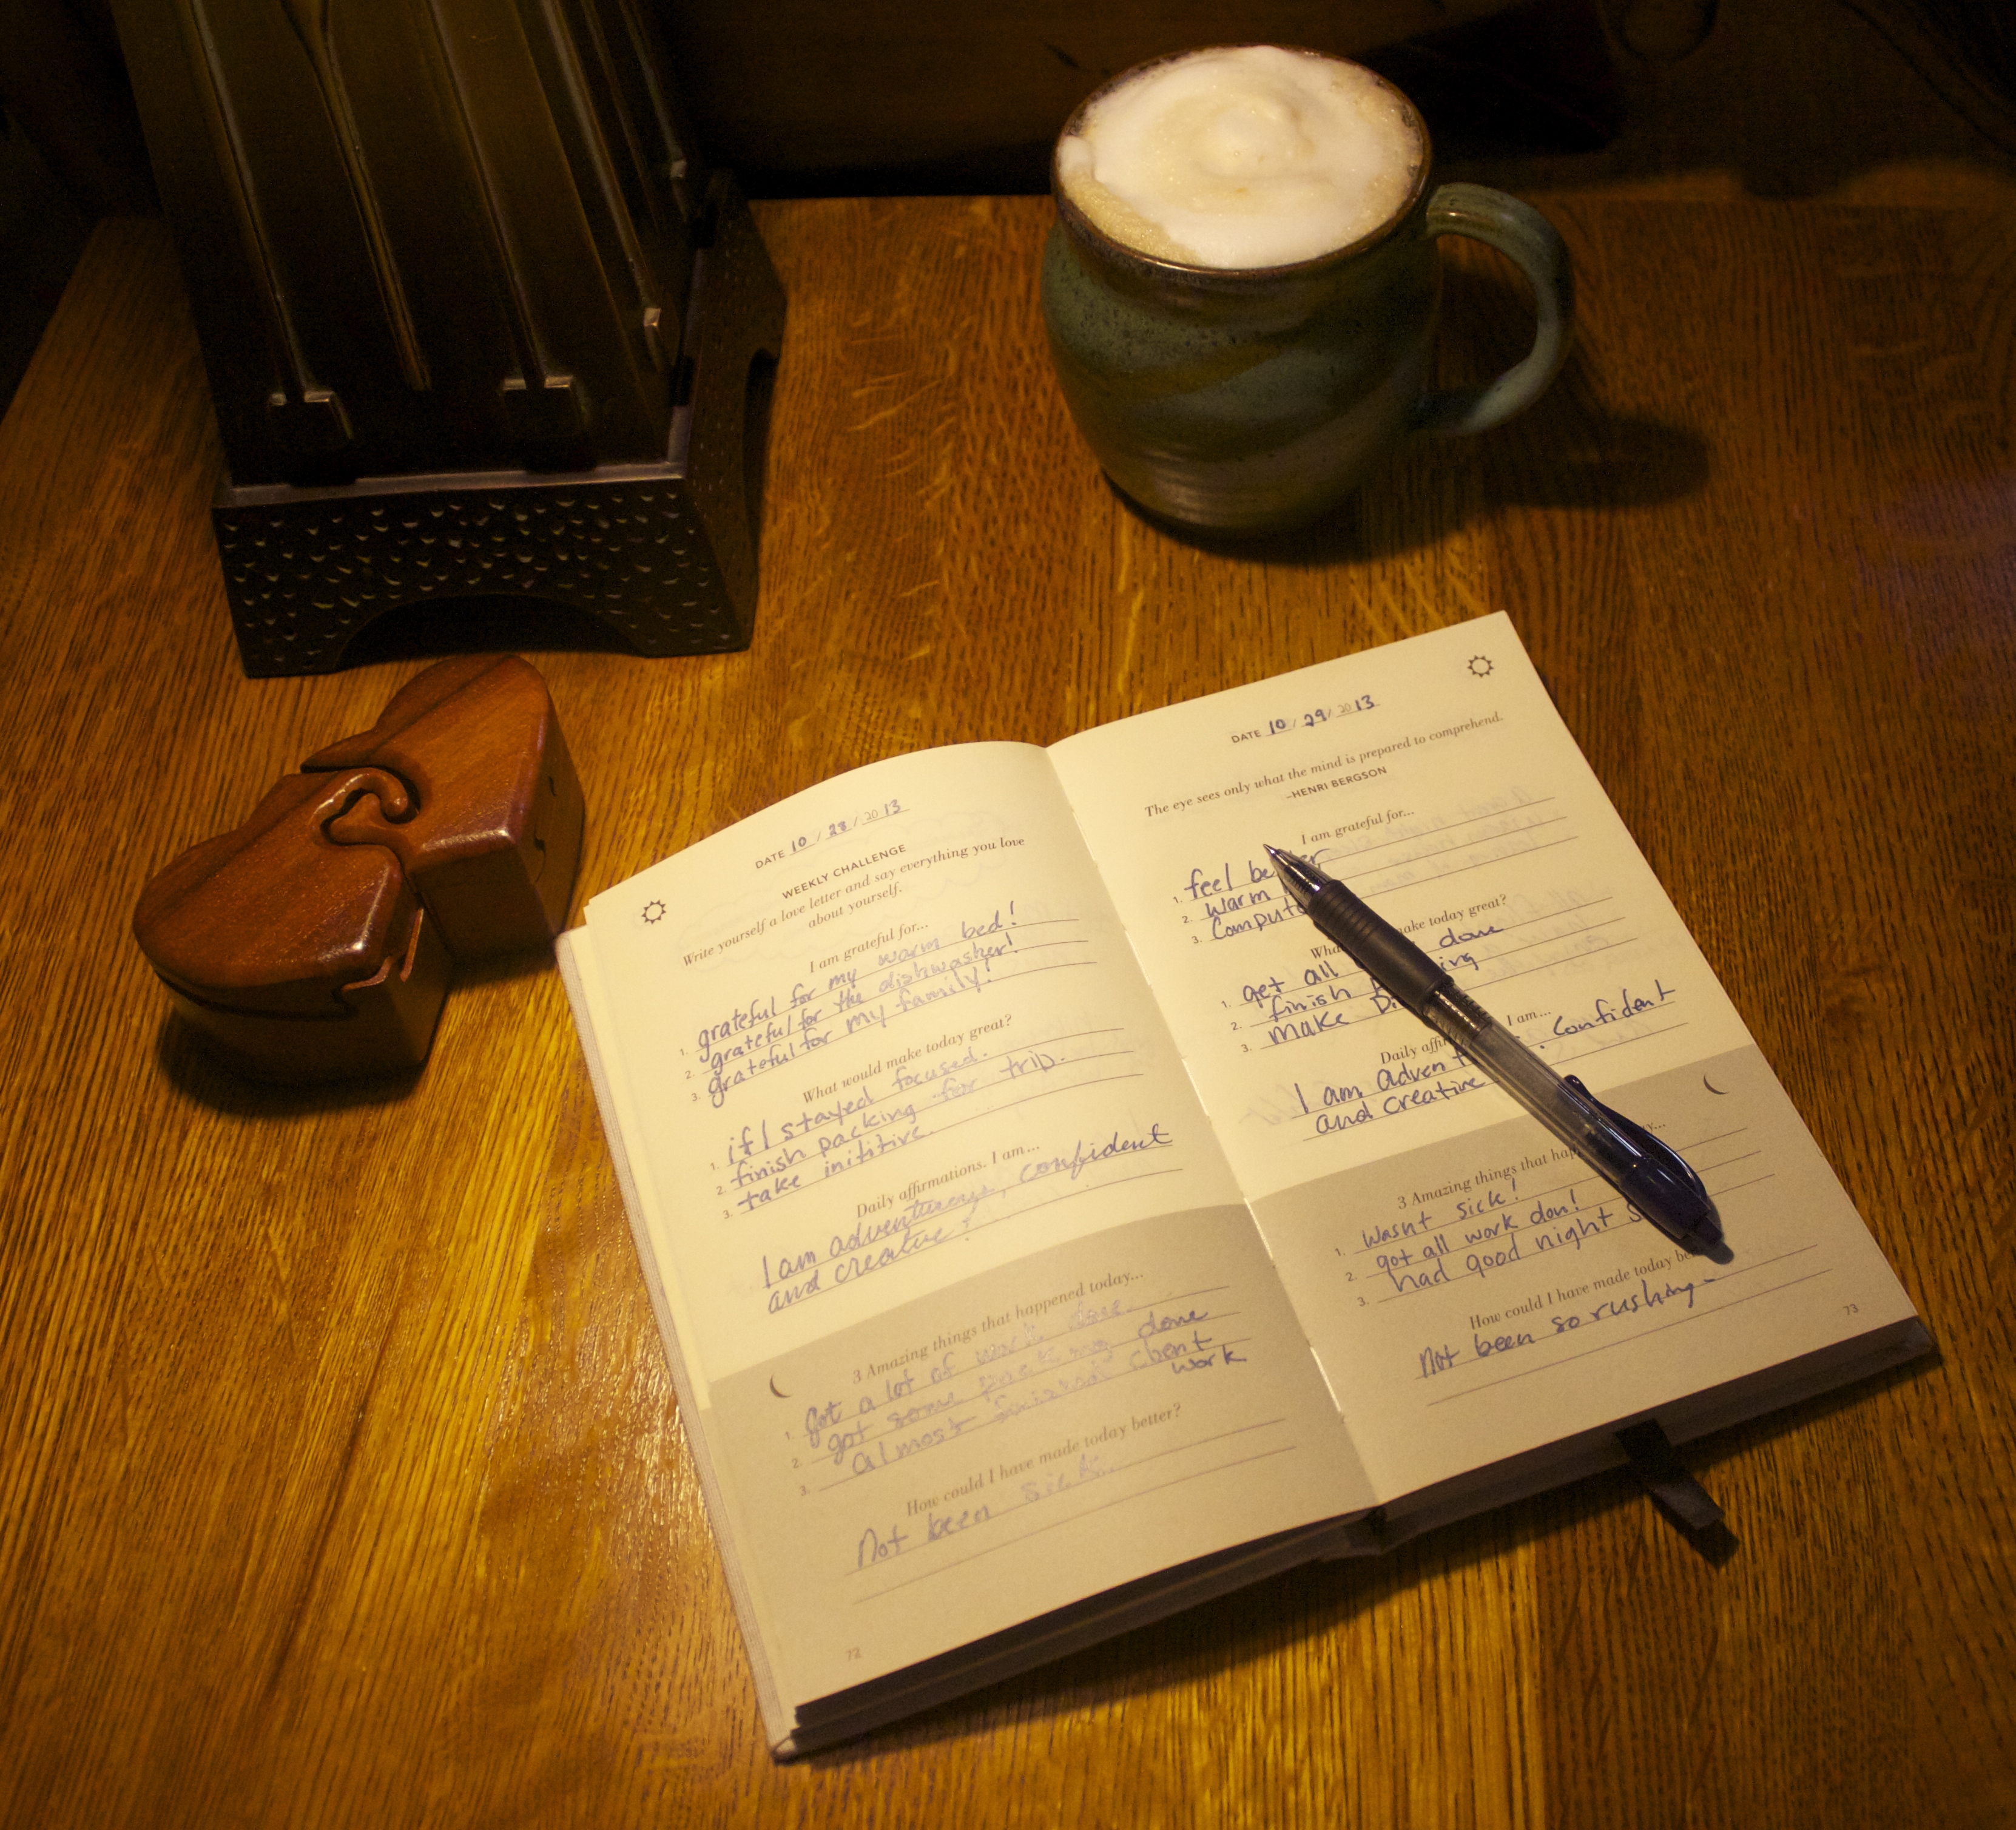 DATE 10 / 28 / 2013
WEEKLY CHALLENGE
Write yourself a love letter and say everything you love
about yourself.
I am grateful for...
1. grateful for my warm bed!
2. grateful for the dishwasher!
3. grateful for my family!
What would make today great?
1. if I stayed focused.
2. finish packing for trip.
3. take inititive.
Daily affirmations. I am...
I am adventurous, confident
and creative!
3 Amazing things that happened today...
1. Got a lot of work done.
2. got some packing done
3. almost finished client
work
How could I have made today better?
Not been sick.
72
DATE 10 / 29 / 2013
The eye sees only what the mind is prepared to comprehend.
–HENRI BERGSON
I am grateful for...
1. feel
2. warm
3.
make today great?
1. get all done
2. finish
3. make
Daily I am...
I am confident
and creative
3 Amazing things that
1. Wasnt sick!
2. got all work don!
3. had good night
How could I have made today
Not been so rushing
73